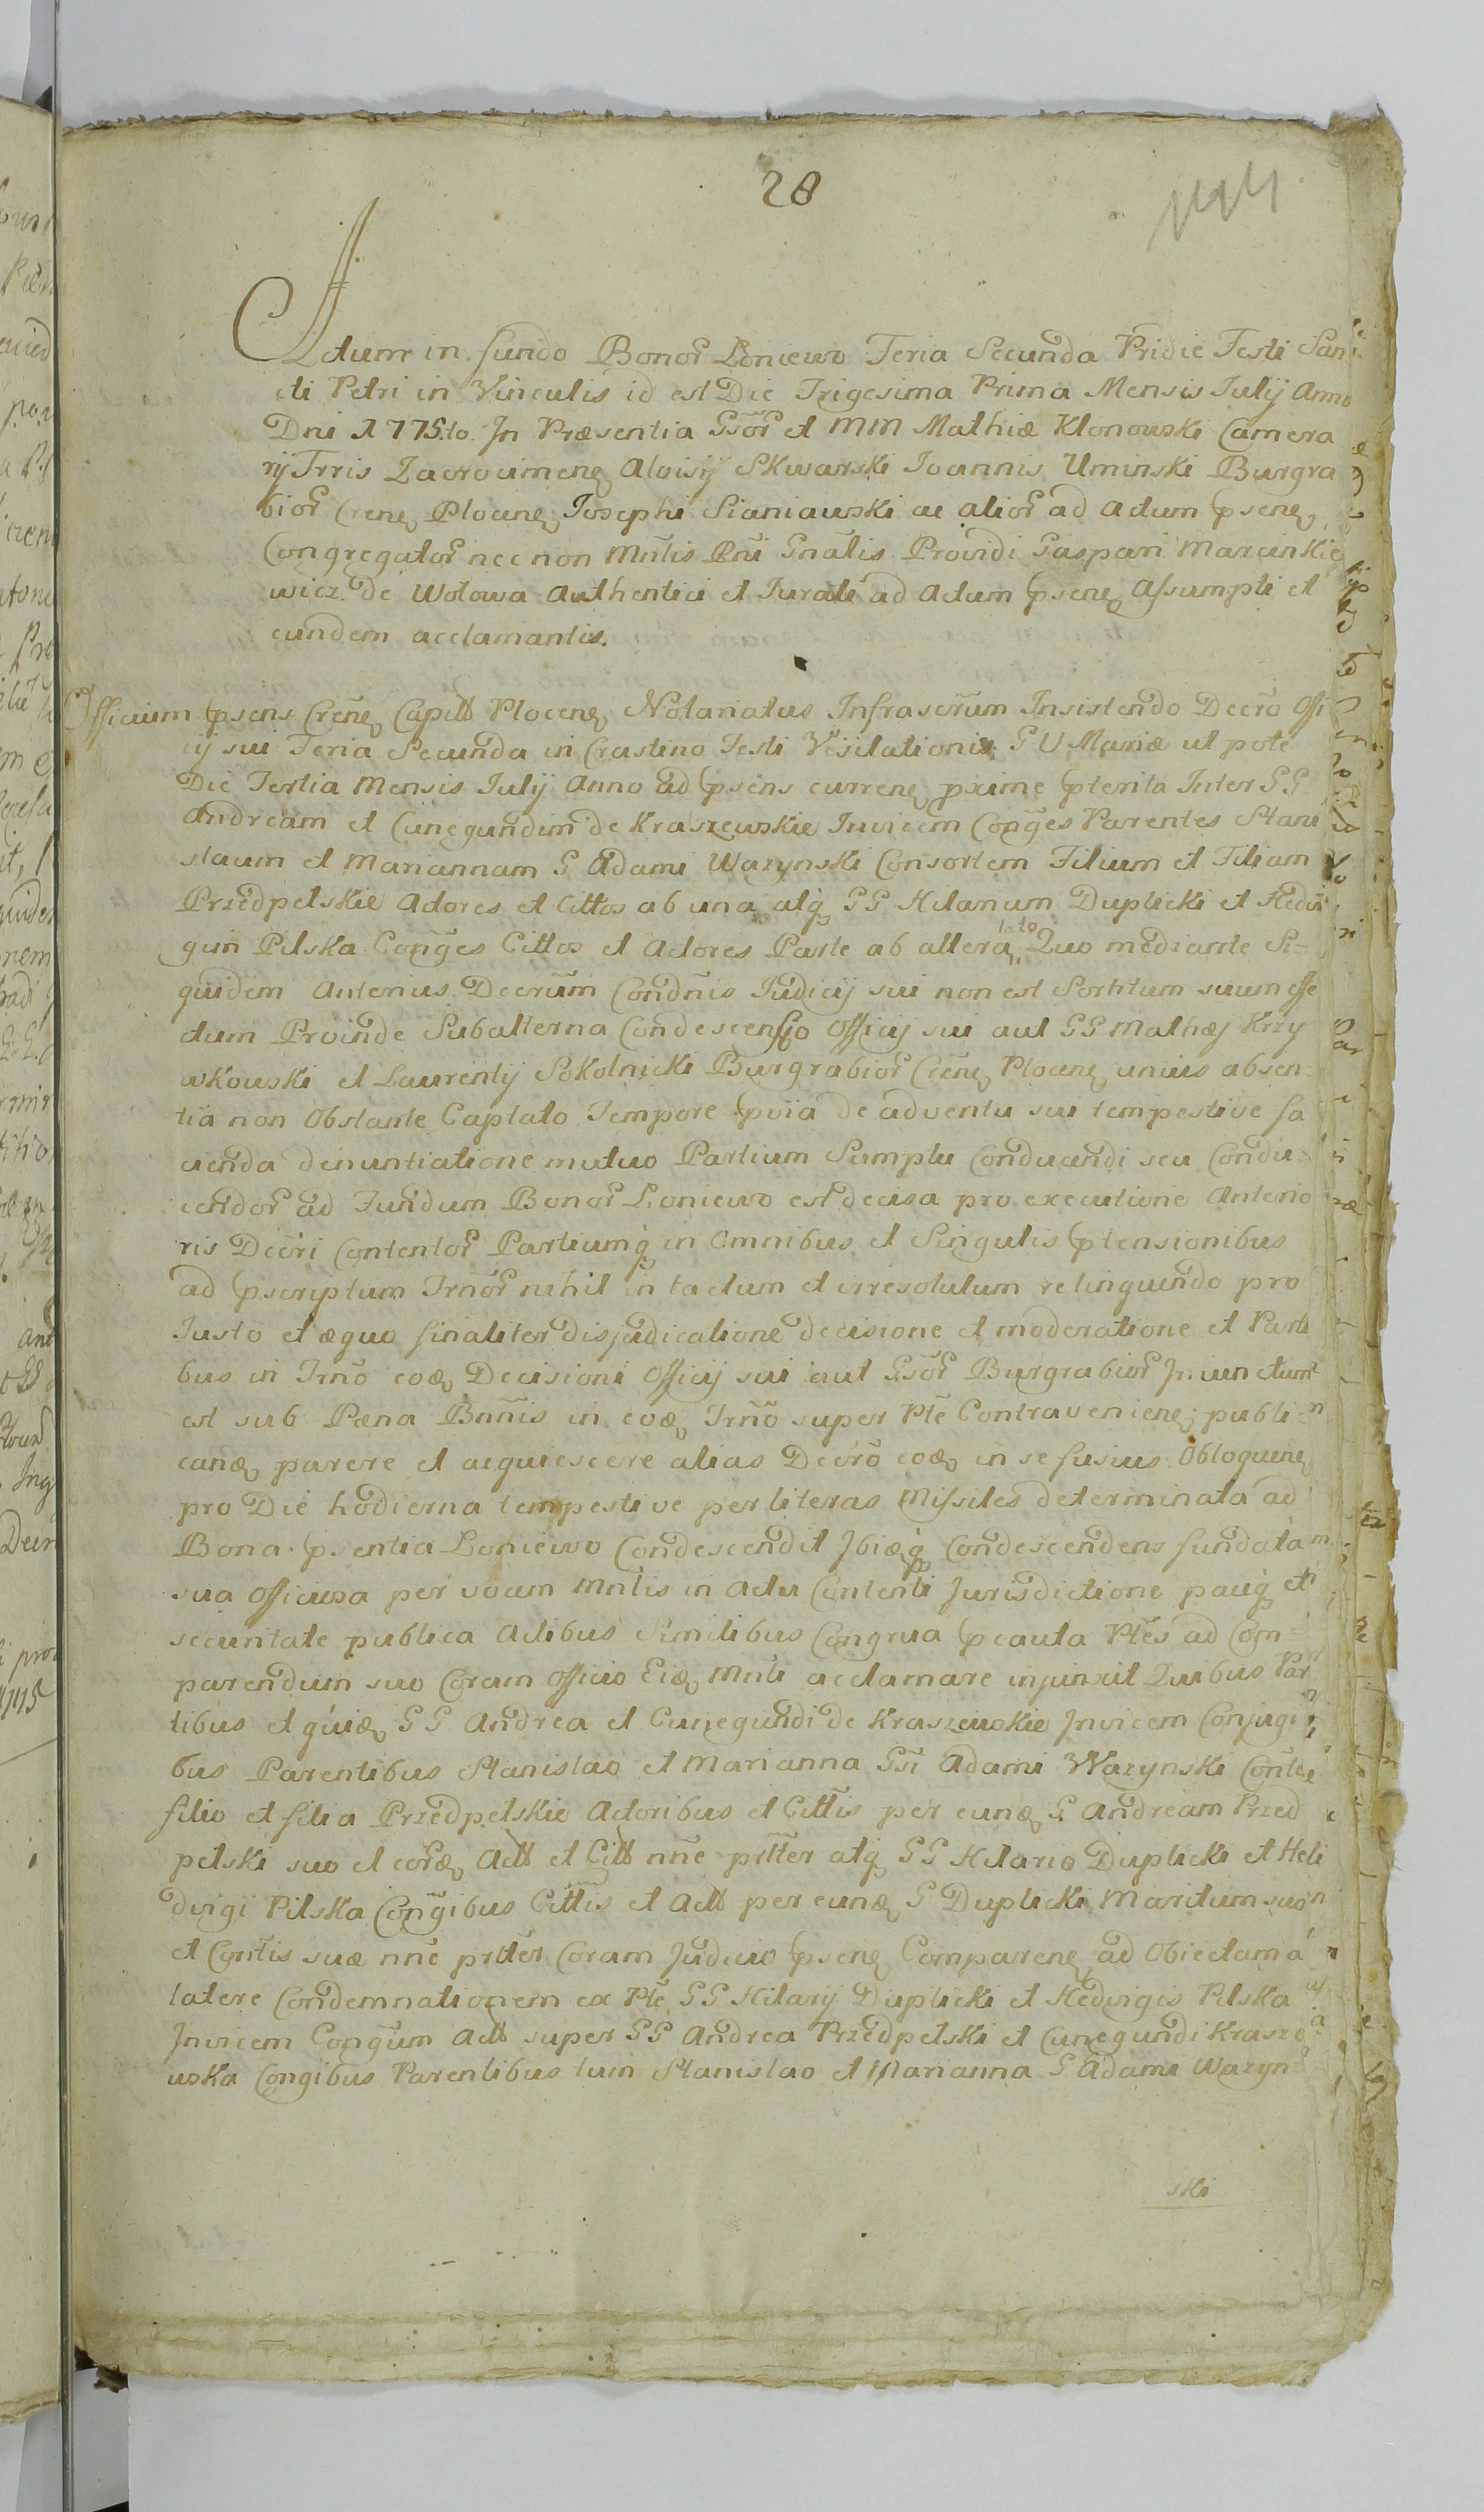 28
Actum in fundo Bonor Loniewo Feria Secunda Pridie Festi San
cti Petri in Vinculis id est Die Trigesima Prima Mensis Julij Anno
Dni 1775to. In Præsentia Gsor et MM Mathiæ Klonowski Camera
rij Trris Zacrocimens Aloisij Skwarski Joannis Uminski Burgra
bior Crens Plocens Josephi Sianiawski ac alior ad Actum psens
Congregator nec non Mntis Rni Gnalis Providi Gaspari Marcinkie
wicz de Wolowa Authentici et Jurati ad Actum psens Assumpti et
eundem acclamantis.
Officium psens Crens Capitt Plocens Notariatus Infrascrum Insistendo Decro Offi
cij sui Feria Secunda in Crastino Festi Visitationis B V Mariæ ut pote
Die Tertia Mensis Julij Anno ad psens currens pxime pterita Inter GG
Andream et Cunegundim de Kraszewskie Invicem Conges Parentes Stani
slaum et Mariannam G Adami Wazynski Consortem Filium et Filiam
Przedpelskie Actores et Cittos ab una atq GG Hilarium Duplicki et Hedvi
gim Pilska Conges Cittos et Actores Parte ab altera lato Quo mediante Si=
quidem Anterius Decrum Condnis Judicij sui non est Sortitum suum effe
ctum Proinde Subalterna Condescensio Officij sui aut GG Mathæj Krzy
wkowski et Laurentij Sokolnicki Burgrabior Crens Plocens unius absen=
tia non Obstante Captato Tempore pvia de adventu sui tempestive fa
cienda denuntiatione mutuo Partium Sumptu Conducendi seu Condu=
cendor ad Fundum Bonor Loniewo est decisa pro executione Anterio
ris Decri Contentor Partiumq in Omnibus et Singulis ptensionibus
ad pscriptum Trnor nihil in tactum et irresolutum relinquendo pro
Justo et æquo finaliter disjudicatione decisione et moderatione et Parti
bus in Trno eod Decisioni Officij sui aut Gsor Burgrabior Injunctum
est sub Pæna Bnnis in eod Trno super Pte Contraveniens publi=
cand parere et acquiescere alias Decro eod in se fusius Obloquens
pro Die hodierna tempestive per literas Missiles determinata ad
Bona psentia Loniewo Condescendit Ibiq Condescendens fundata
sua Officiosa per vocem Mntis in Actu Contenti Jurisdictione paciq et
securitate publica Actibus Similibus Congrua pcauta Ptes ad Com=
parendum suo Coram Officio Eid Mnti acclamare injunxit Quibus Par
tibus et quid GG Andrea et Cunegundi de Kraszewskie Invicem Conjugi
bus Parentibus Stanislao et Marianna Gsi Adami Wazynski Conte
filio et filia Przedpelskie Actoribus et Cittis per eund G Andream Przed
pelski suo et eord Actt et Citt nne prtter atq GG Hilario Duplicki et Heli
dvigi Pilska Congibus Cittis et Actt per eund G Duplicki Maritum suo
et Contis suæ nne prtter Coram Judicio psens Comparens ad Obiectam a
latere Condemnationem ex Pte GG Hilarij Duplicki et Hedvigis Pilska
Invicem Congum Actt super GG Andrea Przedpelski et Cunegundi Krasze
wska Congibus Parentibus tum Stanislao et Marianna G Adami Wazyn=
ski